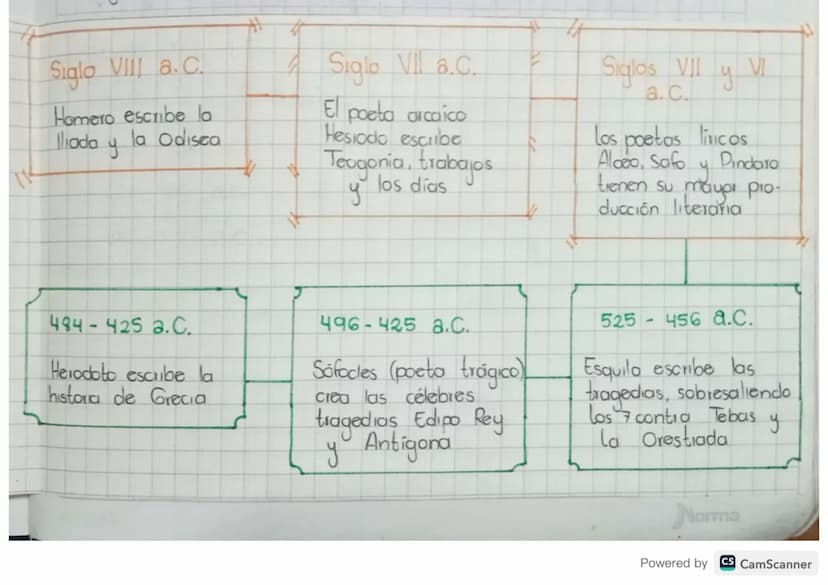 Siglo VIII a.C.
Homero escribe la
Iliada y la Odisea
Siglo VII a.C.
El poeta arcaico
Hesiodo escribe
Teogonia, trabajos
y los días
Siglos VII y VI
a.C.
Los poetas líricos
Alceo, Safo y Pindaro
tienen su mayor pro-
ducción literaria
484 - 425 a.C.
Herodoto escribe la
historia de Grecia
496 - 425 a.C.
Sófocles (poeta trágico)
crea las célebres
tragedias Edipo Rey
y Antígona
525 - 456 a.C.
Esquilo escribe las
tragedias, sobresaliendo
los 7 contra Tebas y
la Orestiada
Norma
Powered by CS CamScanner